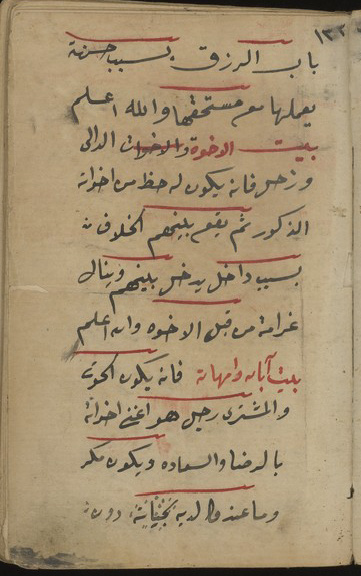 باب الرزق بسبب حسنة
يعملها مع مستحقها والله اعلم
بيت الاخوة والاخوات الدالى
وزحل فانه يكون له حظ من اخواته
الذكور ثم يقع بينهم الخلاف
بسبب داخل يدخل بينهم وينال
غرامة من قبل الاخوه والله اعلم
بيت آبائه وامهاته فانه يكون الحوت
والمشترى رجل هو اغنى اخوانه
بالرضا والسعاده ويكون
وما عند والديه دون